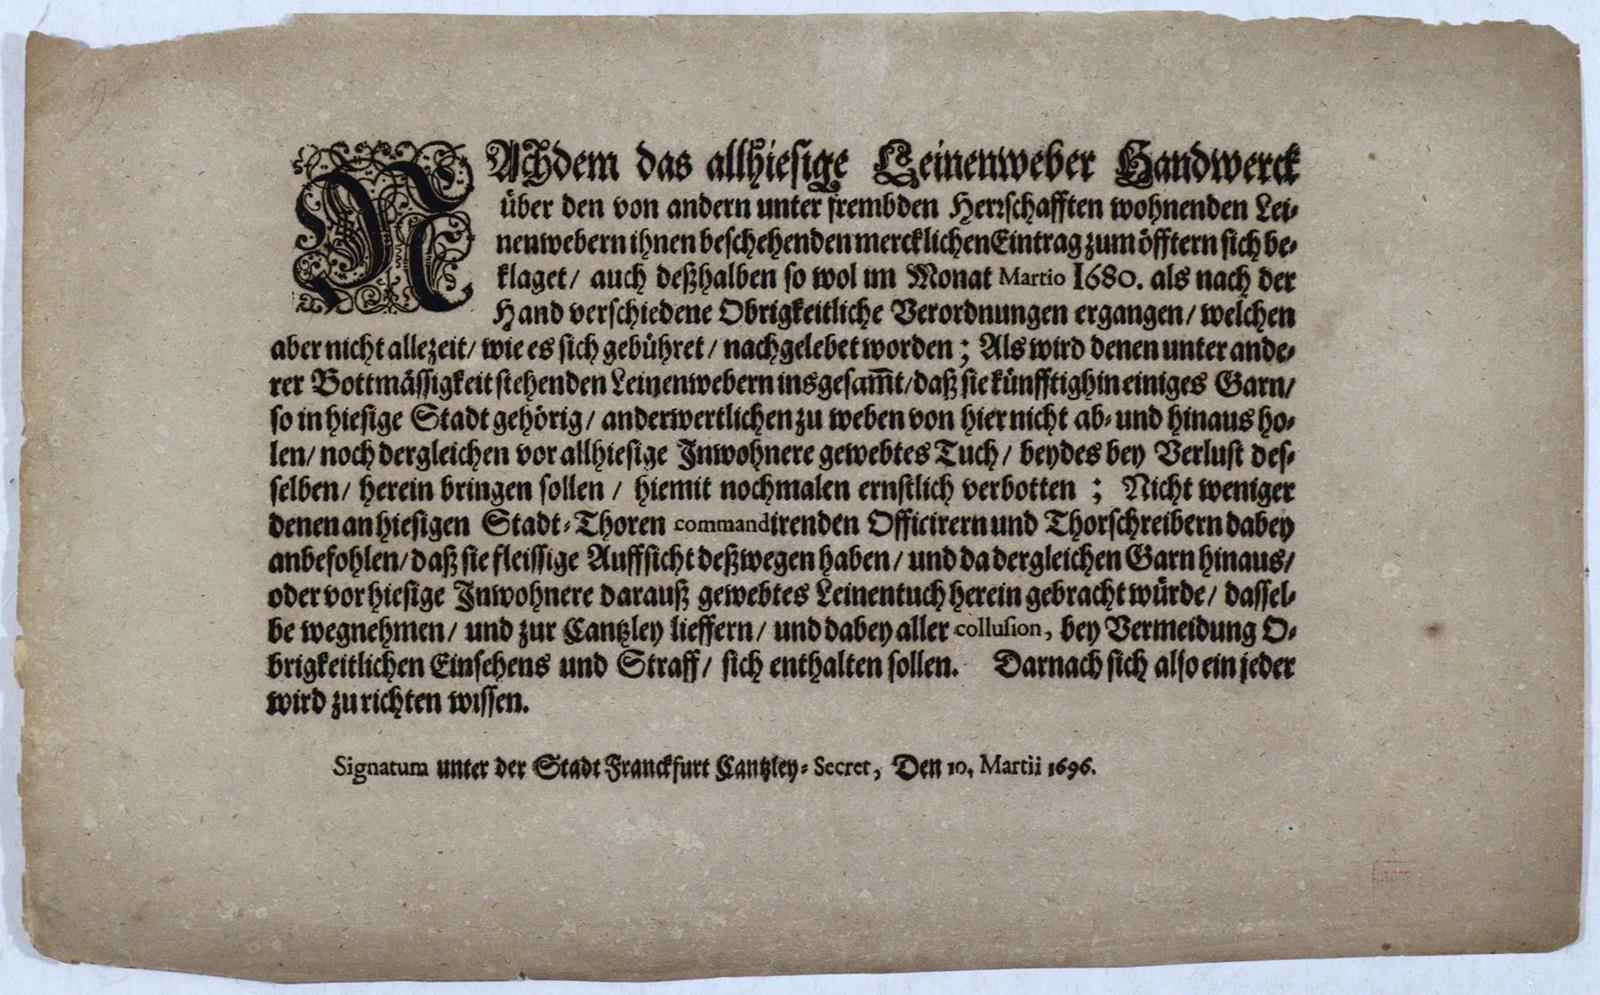 NAchdem das allhiesige Leinenweber Handwerck
über den von andern unter frembden Herrschafften wohnenden Lei-
nenwebern ihnen beschehenden mercklichen Eintrag zum öfftern sich be-
klaget / auch deßhalben so wol im Monat Martio 1680. als nach der
Hand verschiedene Obrigkeitliche Verordnungen ergangen / welchen
aber nicht allezeit / wie es sich gebühret / nachgelebet worden ; Als wird denen unter ande-
rer Bottmässigkeit stehenden Leinenwebern insgesam̃t / daß sie künfftighin einiges Garn /
so in hiesige Stadt gehörig / anderwertlichen zu weben von hier nicht ab- und hinaus ho-
len / noch dergleichen vor allhiesige Inwohnere gewebtes Tuch / beydes bey Verlust des-
selben / herein bringen sollen / hiemit nochmalen ernstlich verbotten ; Nicht weniger
denen an hiesigen Stadt-Thoren commandirenden Officirern und Thorschreibern dabey
anbefohlen / daß sie fleissige Auffsicht deßwegen haben / und da dergleichen Garn hinaus /
oder vor hiesige Inwohnere darauß gewebtes Leinentuch herein gebracht würde / dassel-
be wegnehmen / und zur Cantzley lieffern / und dabey aller collusion, bey Vermeidung O-
brigkeitlichen Einsehens und Straff / sich enthalten sollen. Darnach sich also ein jeder
wird zu richten wissen.
Signatum unter der Stadt Franckfurt Cantzley-Secret, Den 10. Martii 1696.